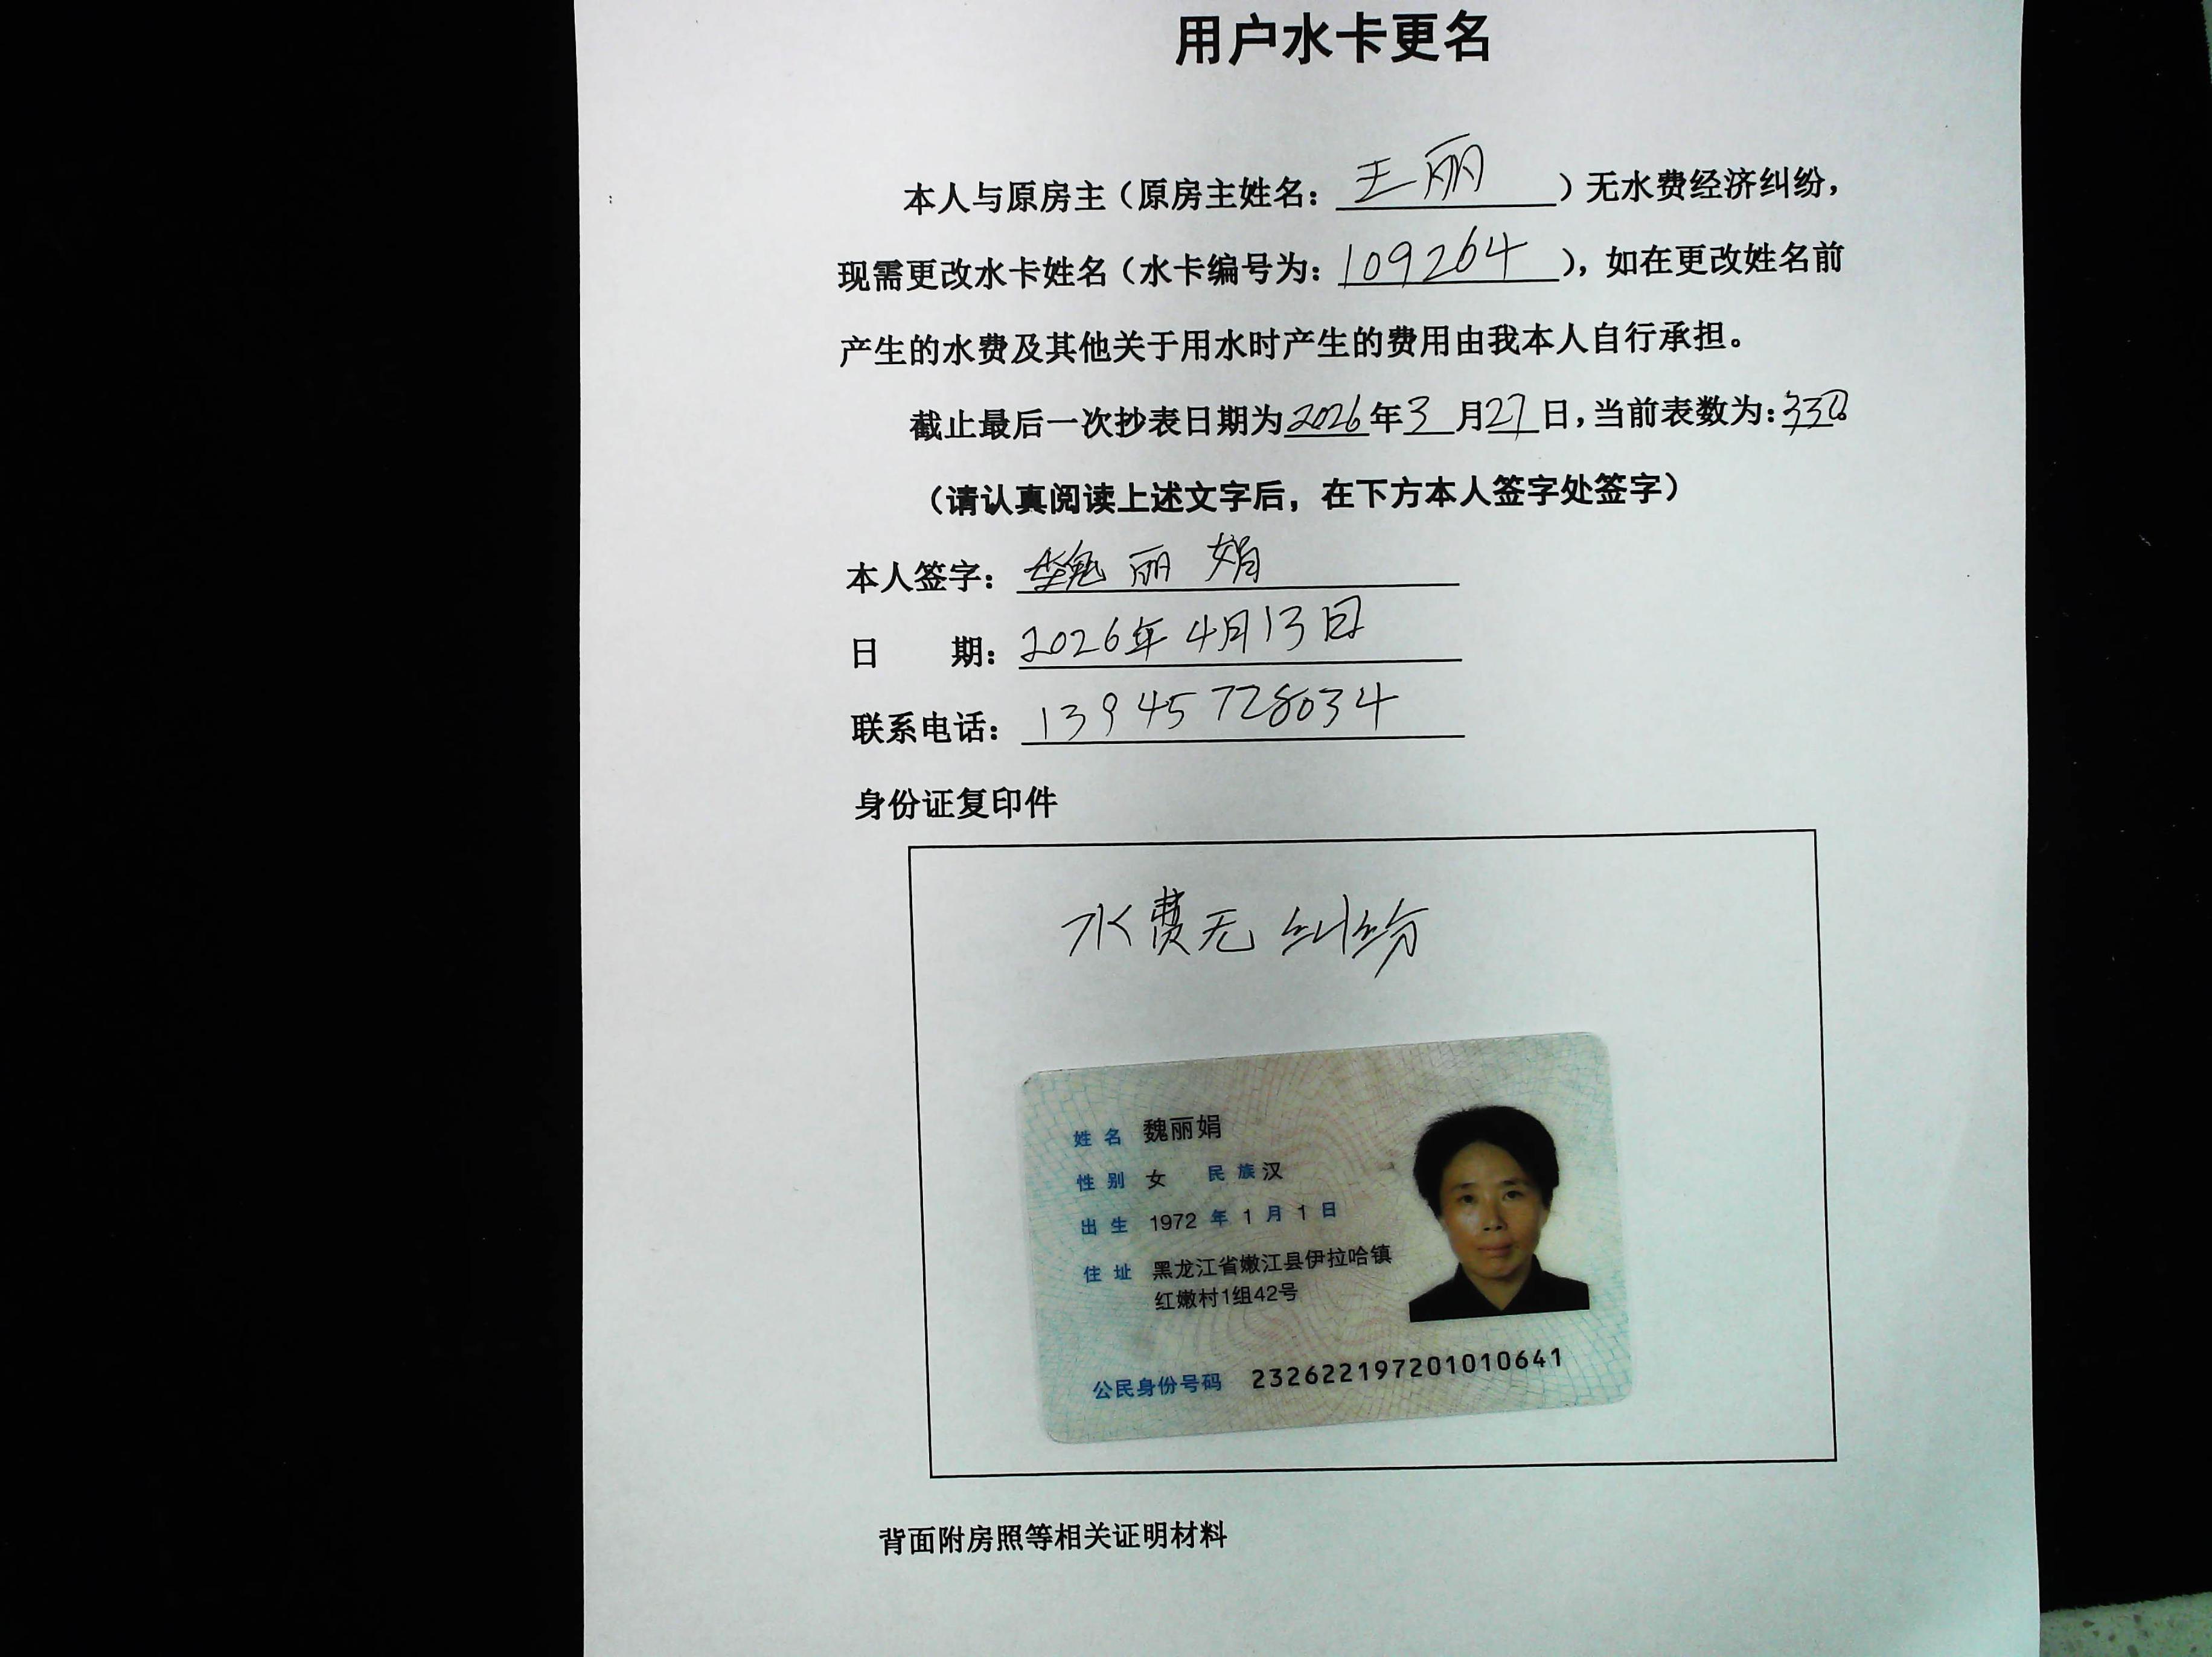 用户水卡更名
本人与原房主（原房主姓名：王丽）无水费经济纠纷，
现需更改水卡姓名（水卡编号为：109264），如在更改姓名前
产生的水费及其他关于用水时产生的费用由我本人自行承担。
截止最后一次抄表日期为2026年3月27日，当前表数为：
（请认真阅读上述文字后，在下方本人签字处签字）
本人签字：魏丽娟
日 期：2026年4月13日
联系电话：13945728034
身份证复印件
水费无纠纷
姓名 魏丽娟
性别 女 民族 汉
出生 1972年1月1日
住址 黑龙江省嫩江县伊拉哈镇
红嫩村1组42号
公民身份号码 232622197201010641
背面附房照等相关证明材料